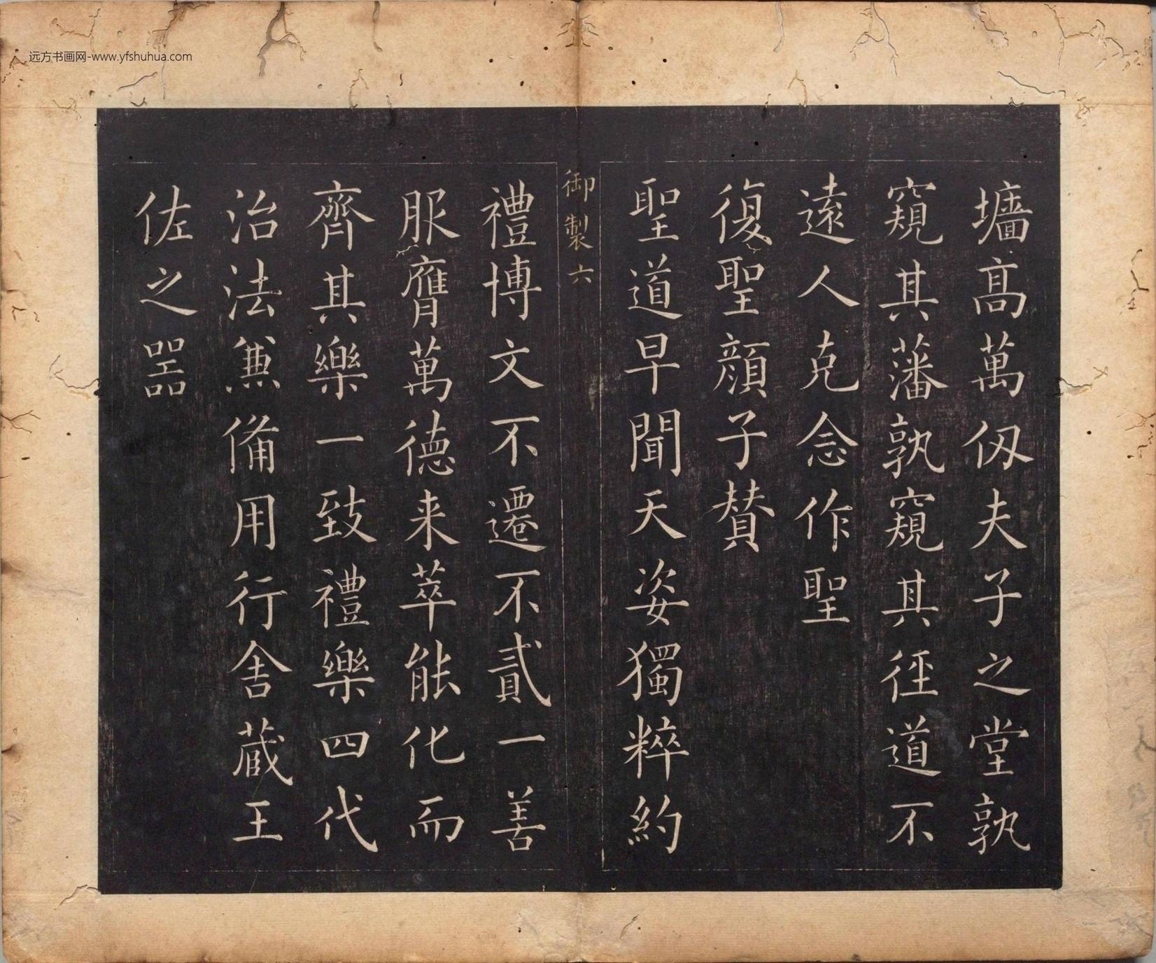 远方书画网-www.yfshuhua.com
墻髙萬仭夫子之堂孰
窺其藩孰窺其徑道不
逺人克念作聖
復聖顔子賛
聖道早聞天姿獨粹約
御製 六
禮博文不遷不貳一善
服膺萬德来萃能化而
齊其樂一致禮樂四代
治法兼備用行舎蔵王
佐之噐